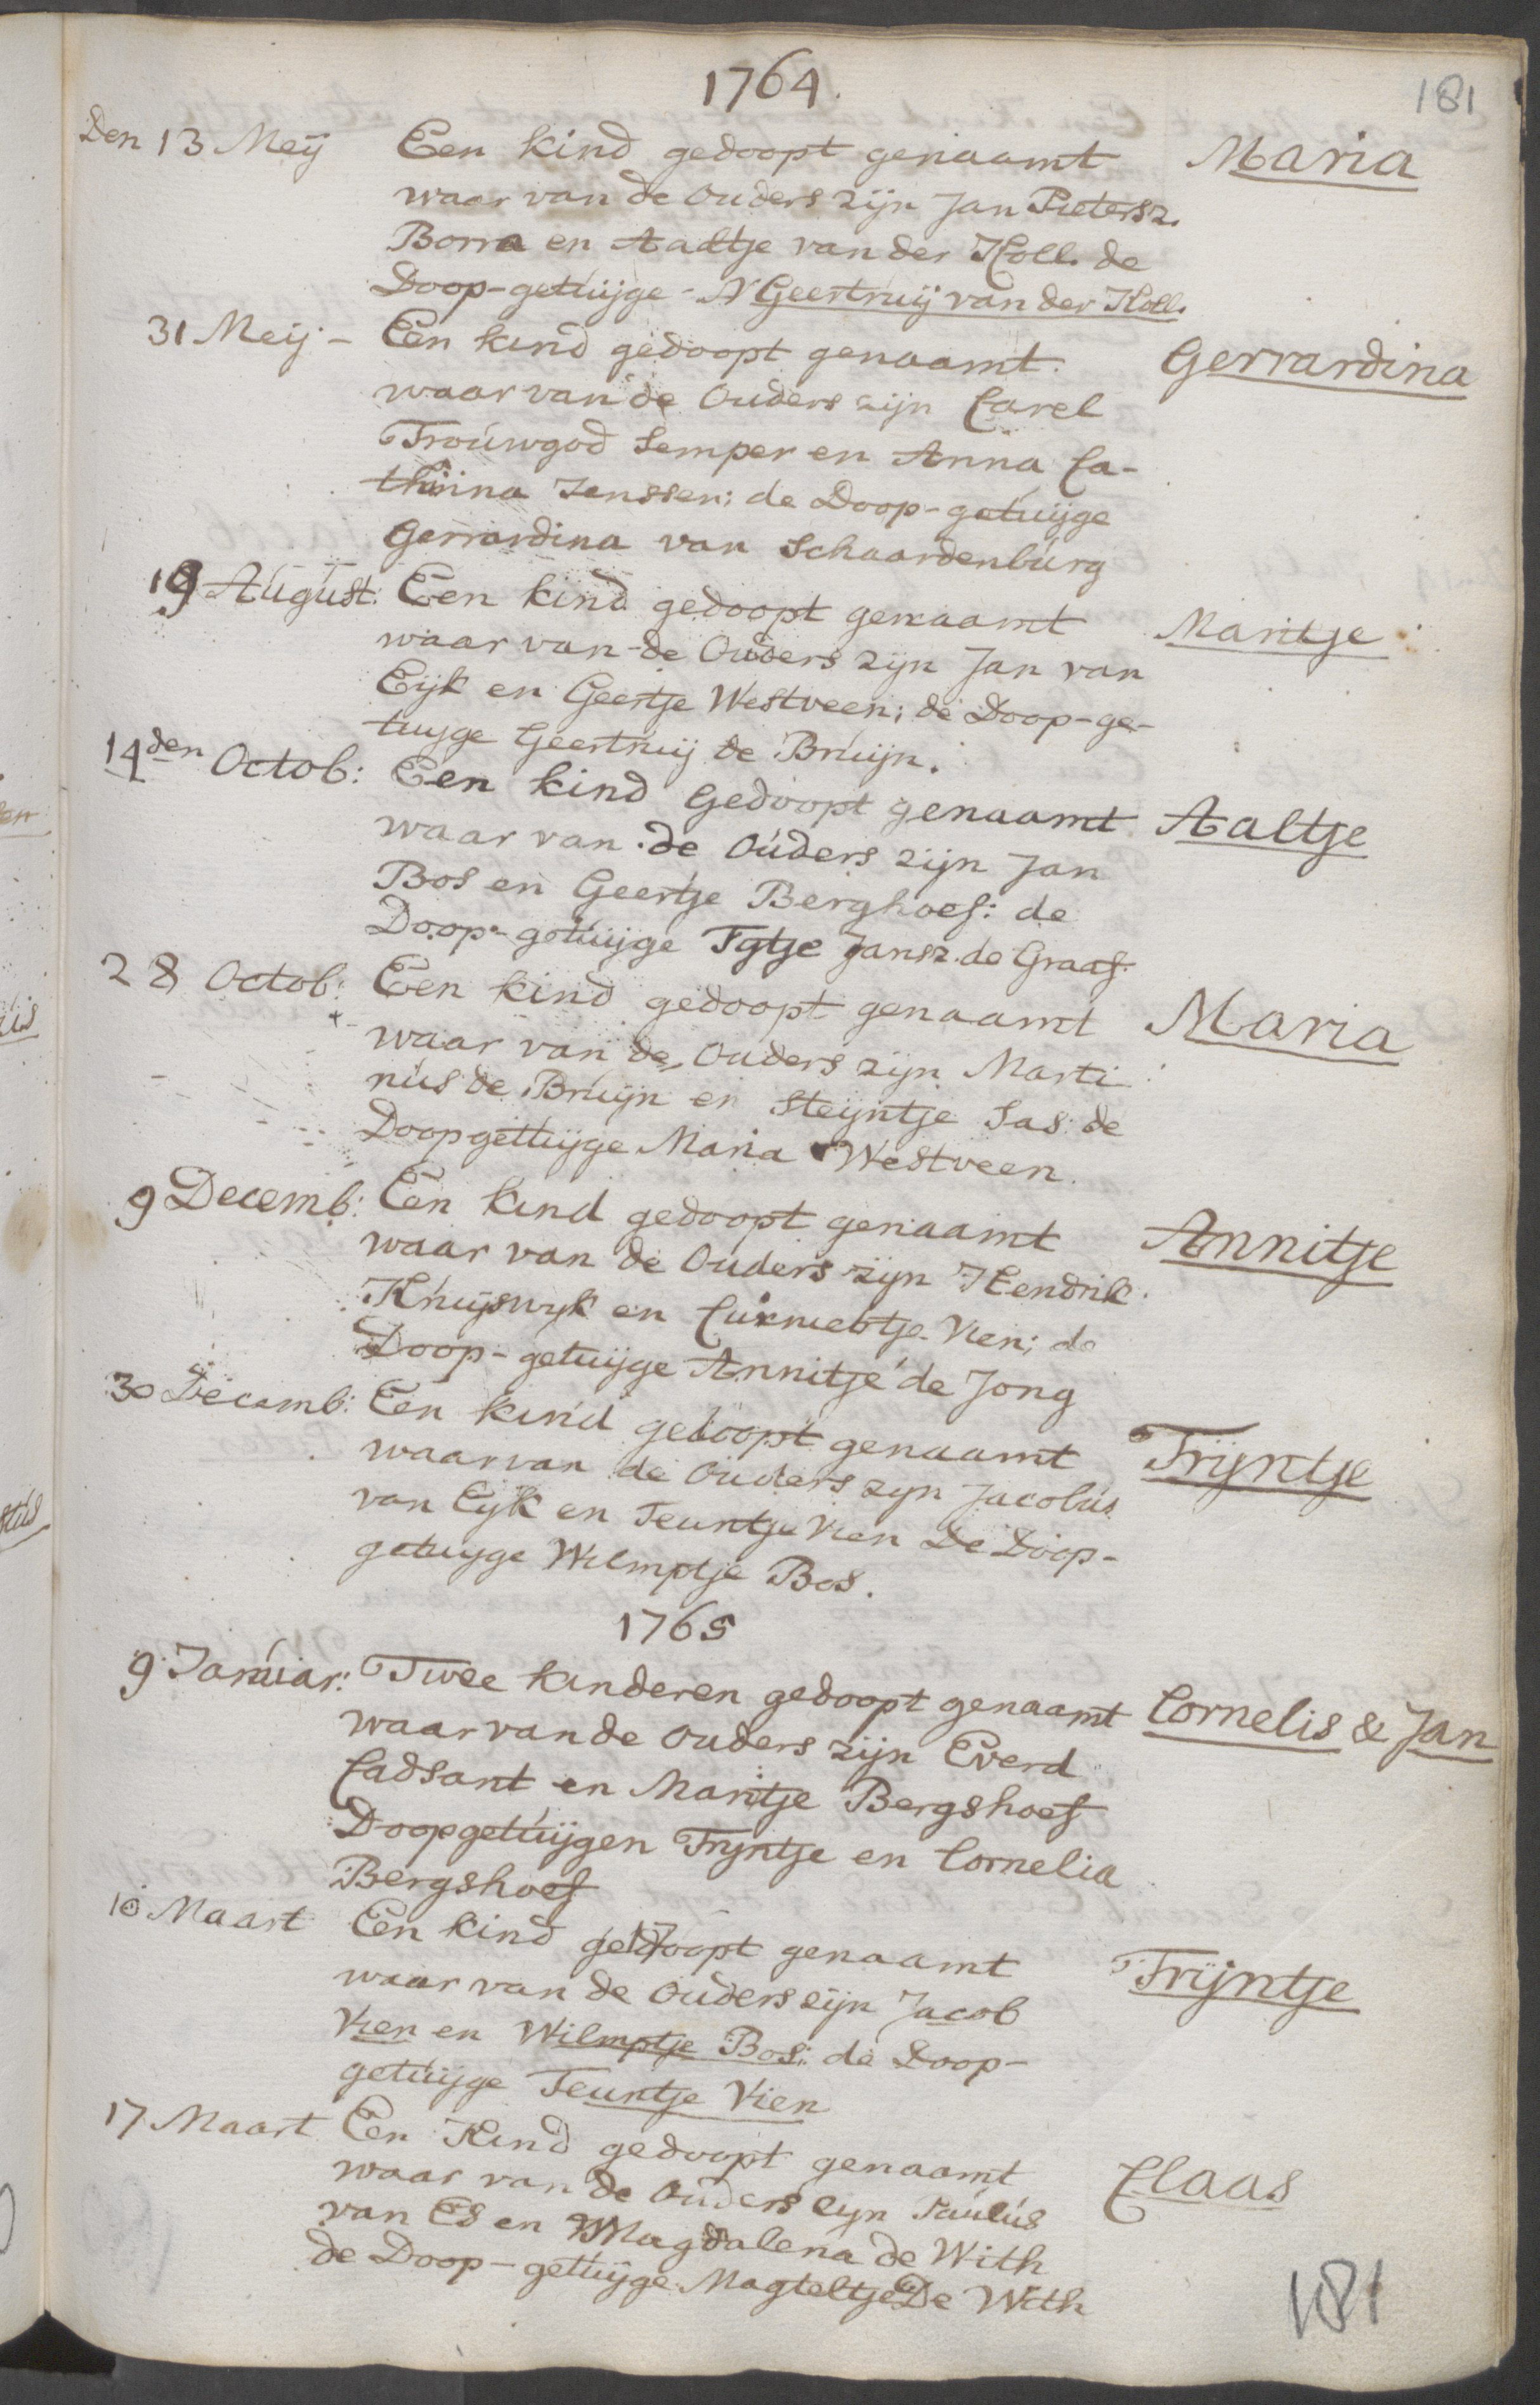 1764.
181
Den 13 Meij Een kind gedoopt genaamt Maria
waar van de Ouders zijn Jan Pietersz.
Borra en Aaltje van der Holl. de
Doop-getuijge - N Geertruij van der Holl.
31 Meij - Een kind gedoopt genaamt. Gerrardina
waar van de Ouders zijn Carel
Trouwgod Semper en Anna Ca-
thrina Janssen; de Doop-getuijge
Gerrardina van Schaardenburg
19 August: Een kind gedoopt genaamt Maritje
waar van de Ouders zijn Jan van
Eijk en Geertje Westveen; de Doop-ge-
tuijge Geertruij de Bruijn.
14den Octob: Een kind Gedoopt genaamt Aaltje
waar van de Ouders zijn Jan
Bos en Geertje Berghoef: de
Doop-getuijge Tgtje Jansz. de Graaf.
28 Octob: Een kind gedoopt genaamt Maria
waar van de Ouders zijn Marti
nus de Bruijn en Steijntje Sas de
Doopgetuijge Maria Westveen.
9 Decemb: Een kind gedoopt genaamt Annitje
waar van de Ouders zijn Hendrik
Kruijswijk en Vien; de
Doop-getuijge Annitje de Jong
30 Decemb: Een kind gedoopt genaamt Trijntje
waar van de Ouders zyn Jacobus
van Eijk en Teuntje Vien De Doop-
getuijge Wilmptje Bos.
1765
9 Januar: Twee kinderen gedoopt genaamt Cornelis & Jan
waar van de Ouders zijn Everd
Cadsant en Maritje Bergshoef
Doopgetuijgen Trijntje en Cornelia
Bergshoef
10 Maart Een kind gedoopt genaamt Trijntje
waar van de Ouders zijn Jacob
Vien en Wilmptje Bos: de Doop-
getuijge Teuntje Vien
17 Maart Een Kind gedoopt genaamt Claas
waar van de Ouders zyn Paulus
van Es en Magdalena de With
de Doop-getuijge Magteltje De With
181